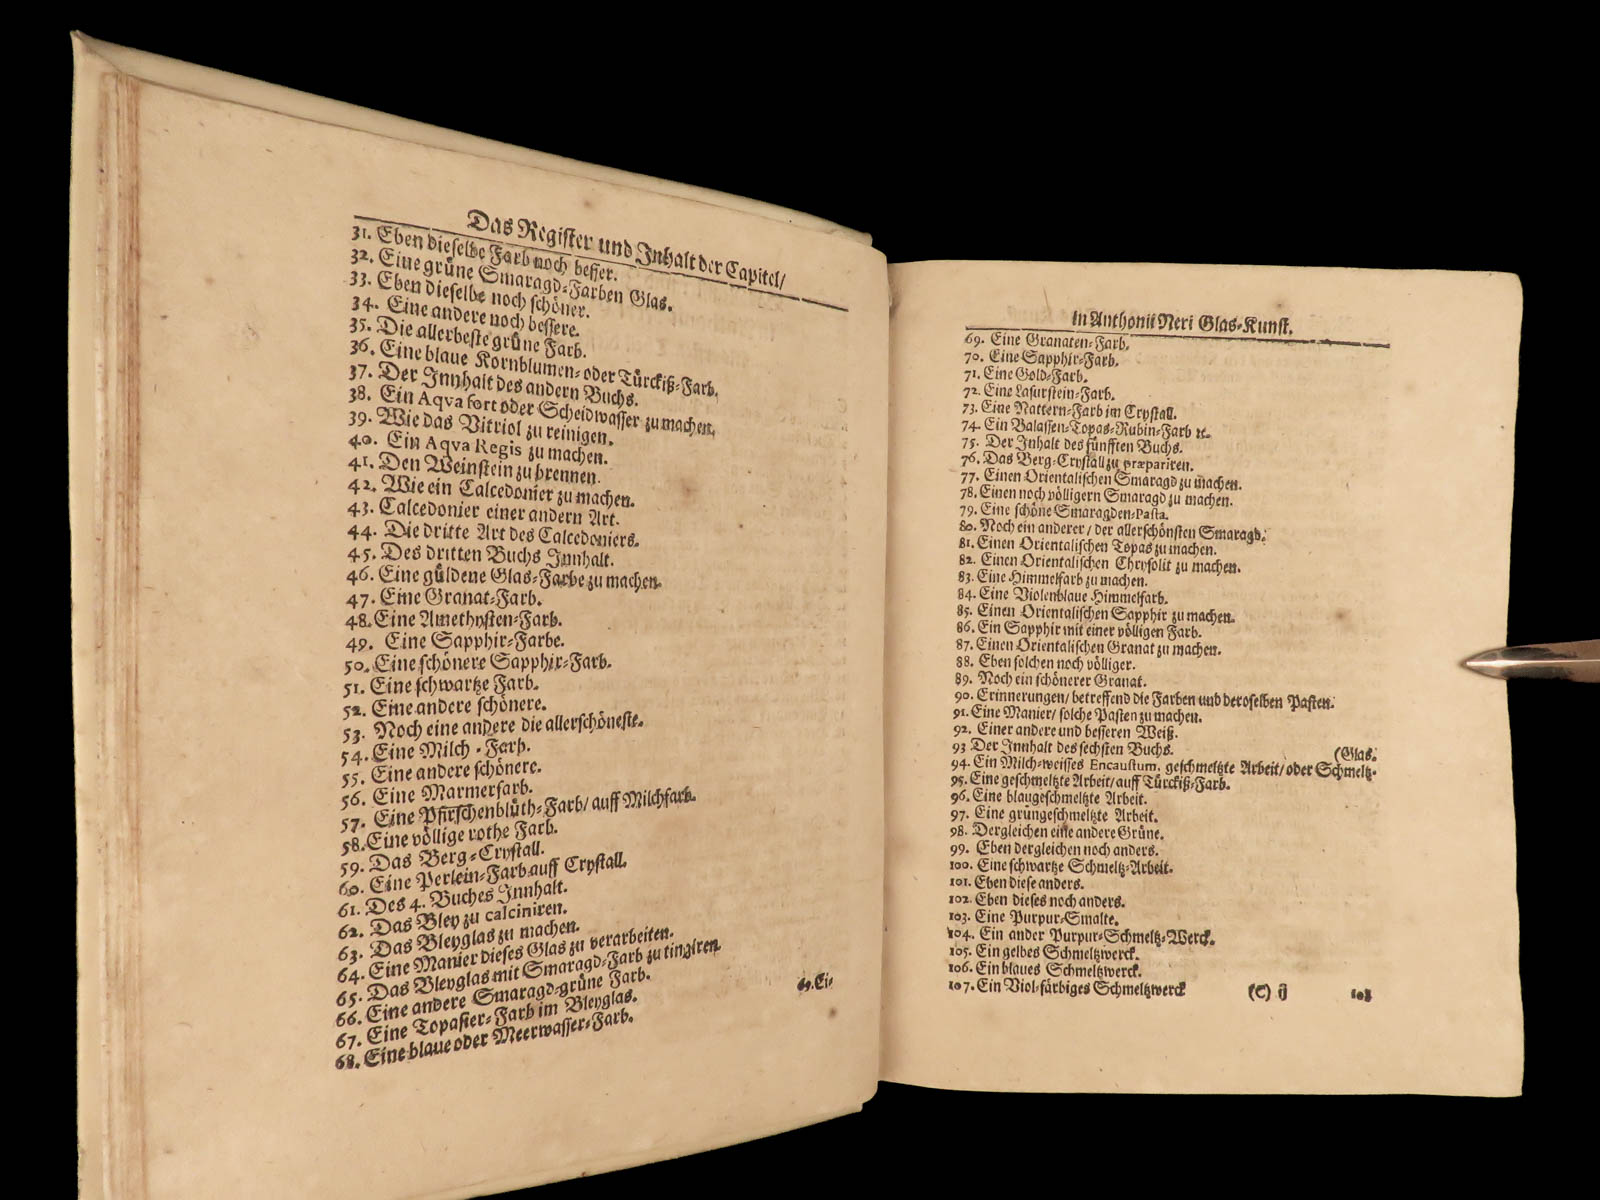 Das Register und Inhalt der Capitel/
31. Eben dieselbe Farb noch besser.
32. Eine grüne Smaragd-Farben Glas.
33. Eben dieselbe noch schöner.
34. Eine andere noch bessere.
35. Die allerbeste grüne Farb.
36. Eine blaue Kornblumen- oder Türckiß-Farb.
37. Der Innhalt des andern Buchs.
38. Ein Aqva fort oder Scheidwasser zu machen.
39. Wie das Vitriol zu reinigen.
40. Ein Aqva Regis zu machen.
41. Den Weinstein zu brennen.
42. Wie ein Calcedonier zu machen.
43. Calcedonier einer andern Art.
44. Die dritte Art des Calcedoniers.
45. Des dritten Buchs Innhalt.
46. Eine güldene Glas-Farbe zu machen.
47. Eine Granat-Farb.
48. Eine Amethysten-Farb.
49. Eine Sapphir-Farbe.
50. Eine schönere Sapphir-Farb.
51. Eine schwartze Farb.
52. Eine andere schönere.
53. Noch eine andere die allerschöneste.
54. Eine Milch-Farb.
55. Eine andere schönere.
56. Eine Marmerfarb.
57. Eine Pfirschenblüth-Farb/ auff Milchfarb.
58. Eine völlige rothe Farb.
59. Das Berg-Crystall.
60. Eine Perlein-Farb auff Crystall.
61. Des 4. Buches Innhalt.
62. Das Bley zu calciniren.
63. Das Bleyglas zu machen.
64. Eine Manier dieses Glas zu verarbeiten.
65. Das Bleyglas mit Smaragd-Farb zu tingiren.
66. Eine andere Smaragd-grüne Farb.
67. Eine Topasier-Farb im Bleyglas.
68. Eine blaue oder Meerwasser-Farb.
69. Ei-
in Anthonii Neri Glas-Kunst.
69. Eine Granaten-Farb.
70. Eine Sapphir-Farb.
71. Eine Gold-Farb.
72. Eine Lasurstein-Farb.
73. Eine Nattern-Farb im Crystall.
74. Ein Balassen-Topas-Rubin-Farb ꝛc.
75. Der Inhalt des fünfften Buchs.
76. Das Berg-Crystall zu præpariren.
77. Einen Orientalischen Smaragd zu machen.
78. Einen noch völligern Smaragd zu machen.
79. Eine schöne Smaragden-Pasta.
80. Noch ein anderer/ der allerschönsten Smaragd.
81. Einen Orientalischen Topas zu machen.
82. Einen Orientalischen Chrysolit zu machen.
83. Eine Himmelfarb zu machen.
84. Eine Violenblaue Himmelfarb.
85. Einen Orientalischen Sapphir zu machen.
86. Ein Sapphir mit einer völligen Farb.
87. Einen Orientalischen Granat zu machen.
88. Eben solchen noch völliger.
89. Noch ein schönerer Granat.
90. Erinnerungen/ betreffend die Farben und deroselben Pasten.
91. Eine Manier/ solche Pasten zu machen.
92. Einer andere und besseren Weiß.
93 Der Innhalt des sechsten Buchs.
(Glas.
94. Ein Milch-weisses Encaustum, geschmeltzte Arbeit/ oder Schmeltz-
95. Eine geschmeltzte Arbeit/ auff Türckiß-Farb.
96. Eine blaugeschmeltzte Arbeit.
97. Eine grüngeschmeltzte Arbeit.
98. Dergleichen eine andere Grüne.
99. Eben dergleichen noch anders.
100. Eine schwartze Schmeltz-Arbeit.
101. Eben diese anders.
102. Eben dieses noch anders.
103. Eine Purpur-Smalte.
104. Ein ander Purpur-Schmeltz-Werck.
105. Ein gelbes Schmeltzwerck.
106. Ein blaues Schmeltzwerck.
107. Ein Viol-färbiges Schmeltzwerck
(C) ij 108